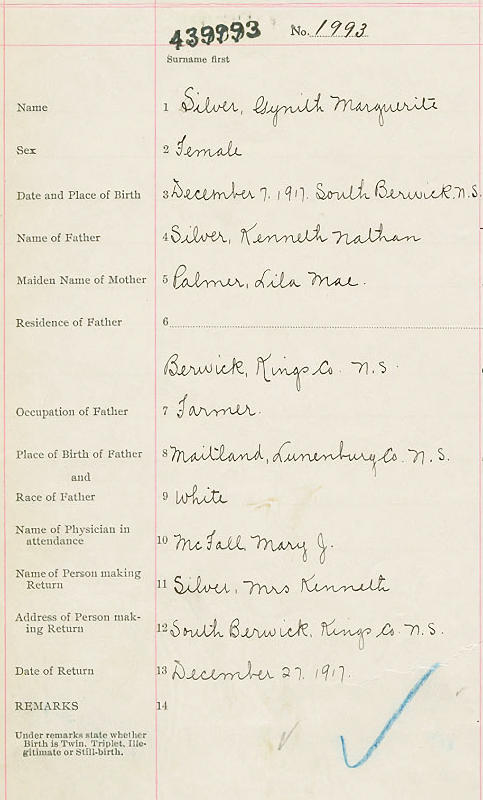 439993 No. 1993
Surname first
Name 1 Silver, Gynith Marguerite
Sex 2 Female
Date and Place of Birth 3 December 7. 1917. South Berwick. N.S.
Name of Father 4 Silver, Kenneth Nathan
Maiden Name of Mother 5 Palmer, Lila Mae.
Residence of Father 6
Berwick, Kings Co. N.S.
Occupation of Father 7 Farmer.
Place of Birth of Father 8 Maitland, Lunenburg Co. N.S.
and
Race of Father 9 White
Name of Physician in
attendance 10 McFall, Mary J.
Name of Person making
Return 11 Silver, Mrs Kenneth
Address of Person mak-
ing Return 12 South Berwick, Kings Co. N.S.
Date of Return 13 December 27. 1917.
REMARKS 14
Under remarks state whether
Birth is Twin, Triplet, Ille-
gitimate or Still-birth.